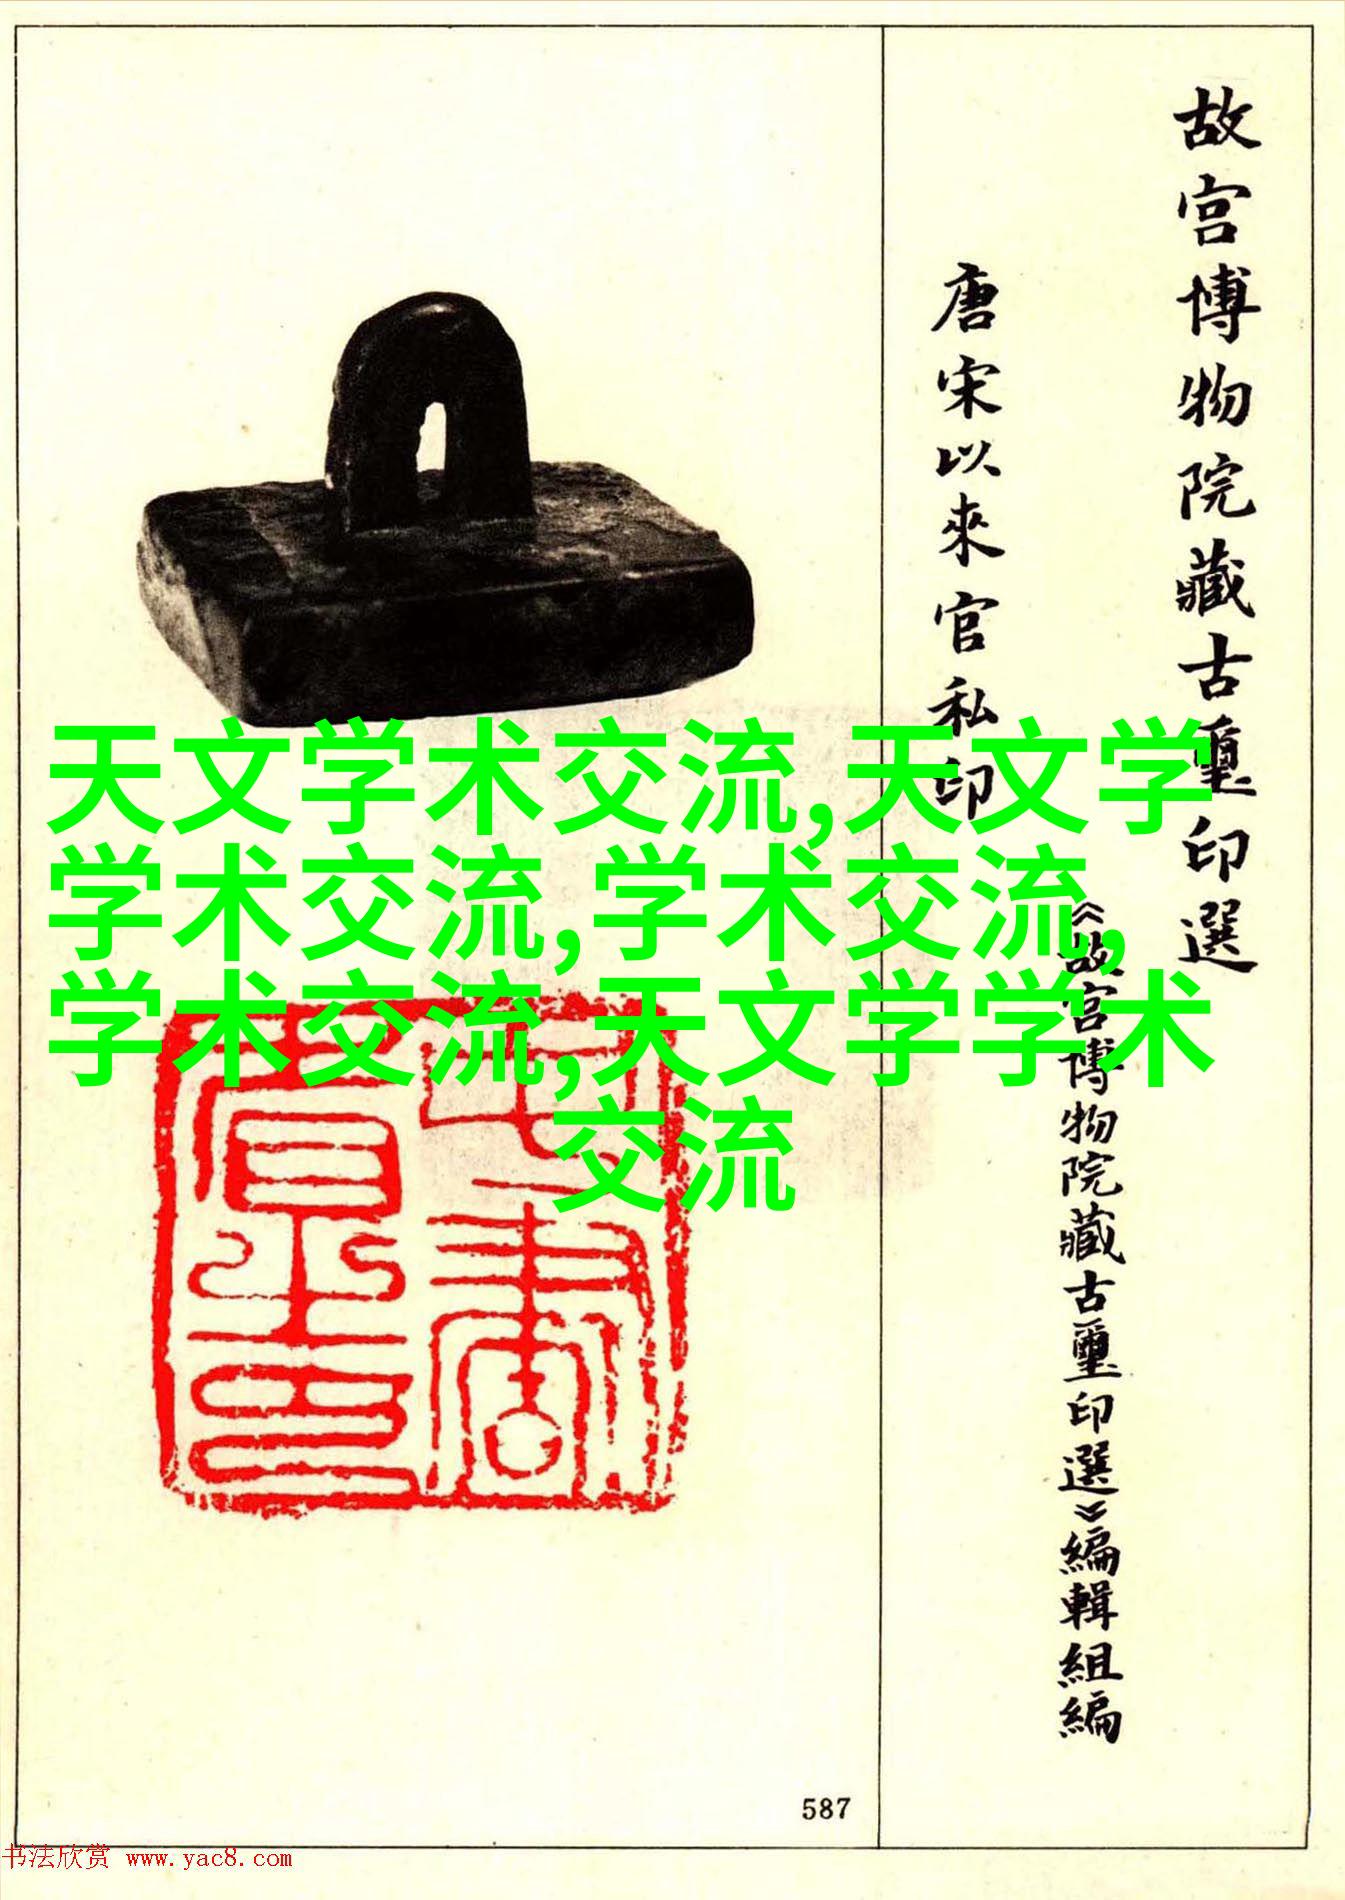 故宫博物院藏古璽印選
《故宫博物院藏古璽印選》編輯組編
唐宋以來官私印
天文学术交流,天文学
学术交流,学术交流,
学术交流,天文学学术
交流
587
书法欣赏 www.yac8.com